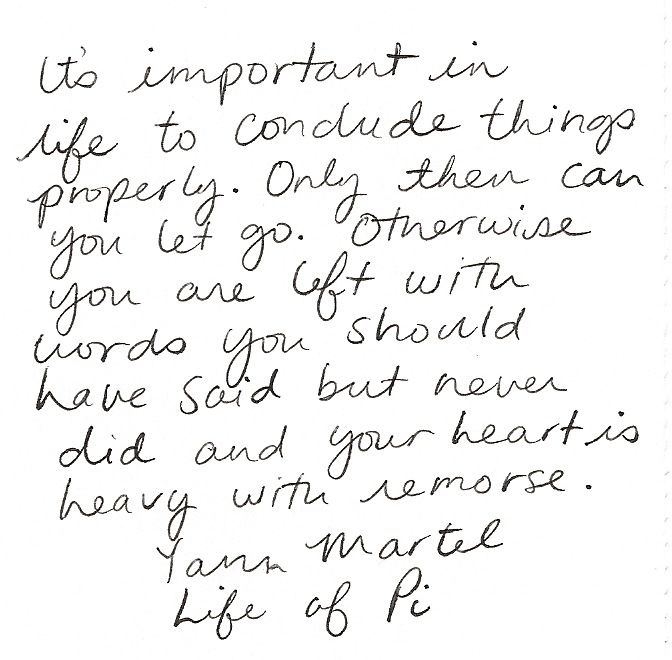 It's important in
life to conclude things
properly. Only then can
you let go. Otherwise
you are left with
words you should
have said but never
did and your heart is
heavy with remorse.
Yann Martel
Life of Pi